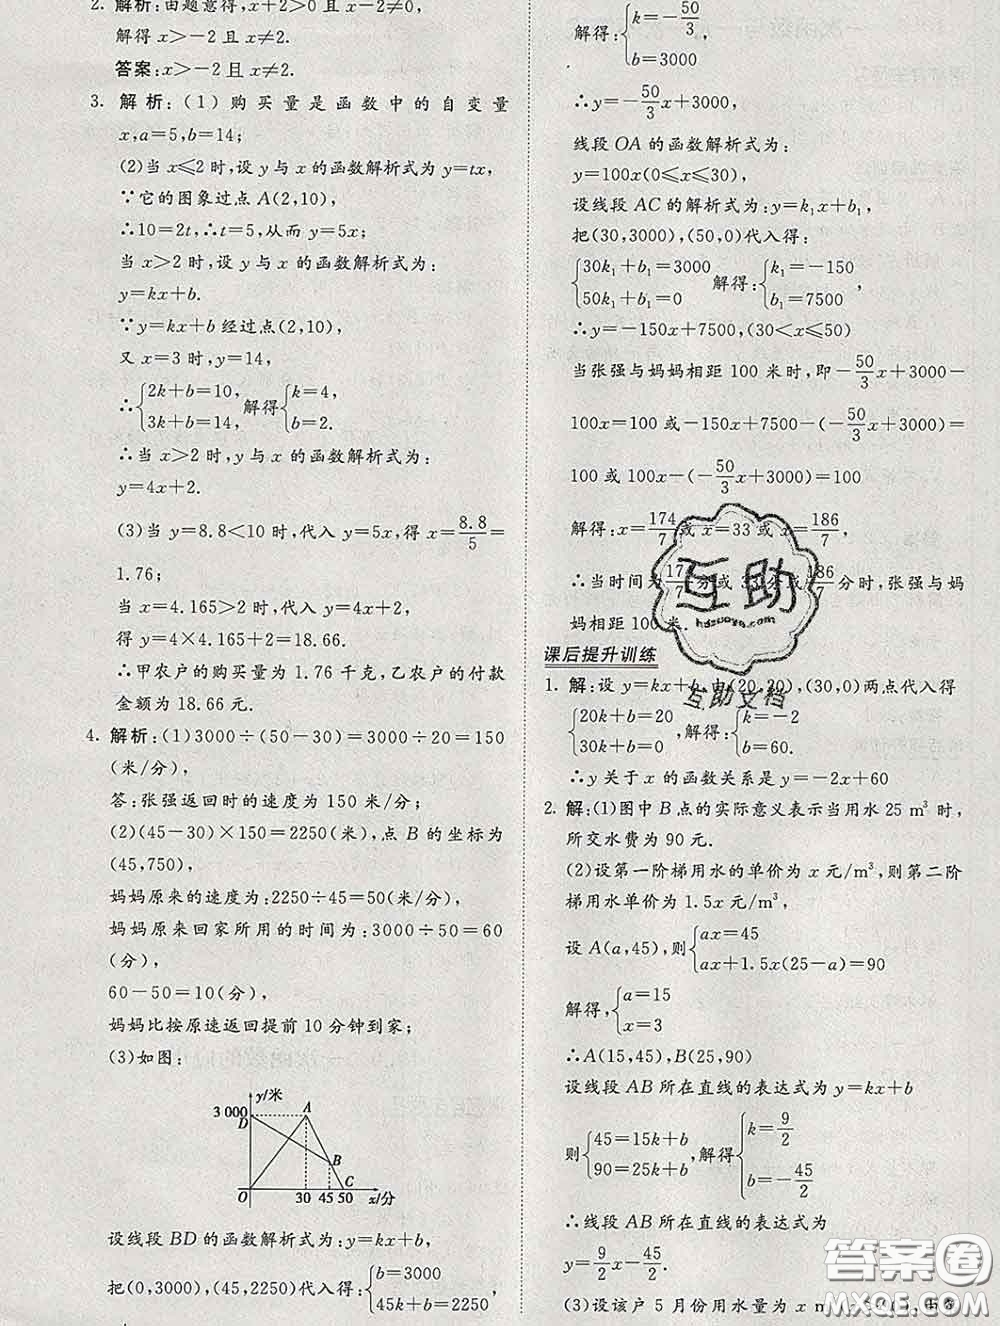 2. 解析:由题意得,x+2>0 且 x-2≠0,
解得 x>-2 且 x≠2.
答案:x>-2 且 x≠2.
3. 解析:(1)购买量是函数中的自变量
x,a=5,b=14;
(2)当 x≤2 时,设 y 与 x 的函数解析式为 y=tx,
∵它的图象过点 A(2,10),
∴10=2t,∴t=5,从而 y=5x;
当 x>2 时,设 y 与 x 的函数解析式为:
y=kx+b.
∵y=kx+b 经过点(2,10),
又 x=3 时,y=14,
∴{2k+b=10, 3k+b=14, 解得{k=4, b=2.
∴当 x>2 时,y 与 x 的函数解析式为:
y=4x+2.
(3)当 y=8.8<10 时,代入 y=5x,得 x=8.8/5=
1.76;
当 x=4.165>2 时,代入 y=4x+2,
得 y=4×4.165+2=18.66.
∴甲农户的购买量为 1.76 千克,乙农户的付款
金额为 18.66 元.
4. 解析:(1)3000÷(50-30)=3000÷20=150
(米/分),
答:张强返回时的速度为 150 米/分;
(2)(45-30)×150=2250(米),点 B 的坐标为
(45,750),
妈妈原来的速度为:2250÷45=50(米/分),
妈妈原来回家所用的时间为:3000÷50=60
(分),
60-50=10(分),
妈妈比按原速返回提前 10 分钟到家;
(3)如图:
y/米
3 000 A
D
B
C
O 30 45 50 x/分
设线段 BD 的函数解析式为:y=kx+b,
把(0,3000),(45,2250)代入得:{b=3000 45k+b=2250
解得:{k=-50/3, b=3000
∴y=-50/3x+3000,
线段 OA 的函数解析式为:
y=100x(0≤x≤30),
设线段 AC 的解析式为:y=k₁x+b₁,
把(30,3000),(50,0)代入得:
{30k₁+b₁=3000 50k₁+b₁=0 解得:{k₁=-150 b₁=7500,
∴y=-150x+7500,(30<x≤50)
当张强与妈妈相距 100 米时,即-50/3x+3000-
100x=100 或-150x+7500-(-50/3x+3000)=
100 或 100x-(-50/3x+3000)=100
解得:x=174/7 或 x=33 或 x=186/7,
∴当时间为 174/7 分或 33 分或 186/7 分时,张强与妈
妈相距 100 米.
互助
hdzuoye.com
互助文档
课后提升训练
1. 解:设 y=kx+b,由(20,20),(30,0)两点代入得
{20k+b=20 30k+b=0, 解得:{k=-2 b=60.
∴y 关于 x 的函数关系是 y=-2x+60
2. 解:(1)图中 B 点的实际意义表示当用水 25 m³ 时,
所交水费为 90 元.
(2)设第一阶梯用水的单价为 x 元/m³,则第二阶
梯用水单价为 1.5x 元/m³,
设 A(a,45),则{ax=45 ax+1.5x(25-a)=90
解得,{a=15 x=3
∴A(15,45),B(25,90)
设线段 AB 所在直线的表达式为 y=kx+b
则{45=15k+b 90=25k+b, 解得{k=9/2 b=-45/2
∴线段 AB 所在直线的表达式为
y=9/2x-45/2.
(3)设该户 5 月份用水量为 x m³
答案卷